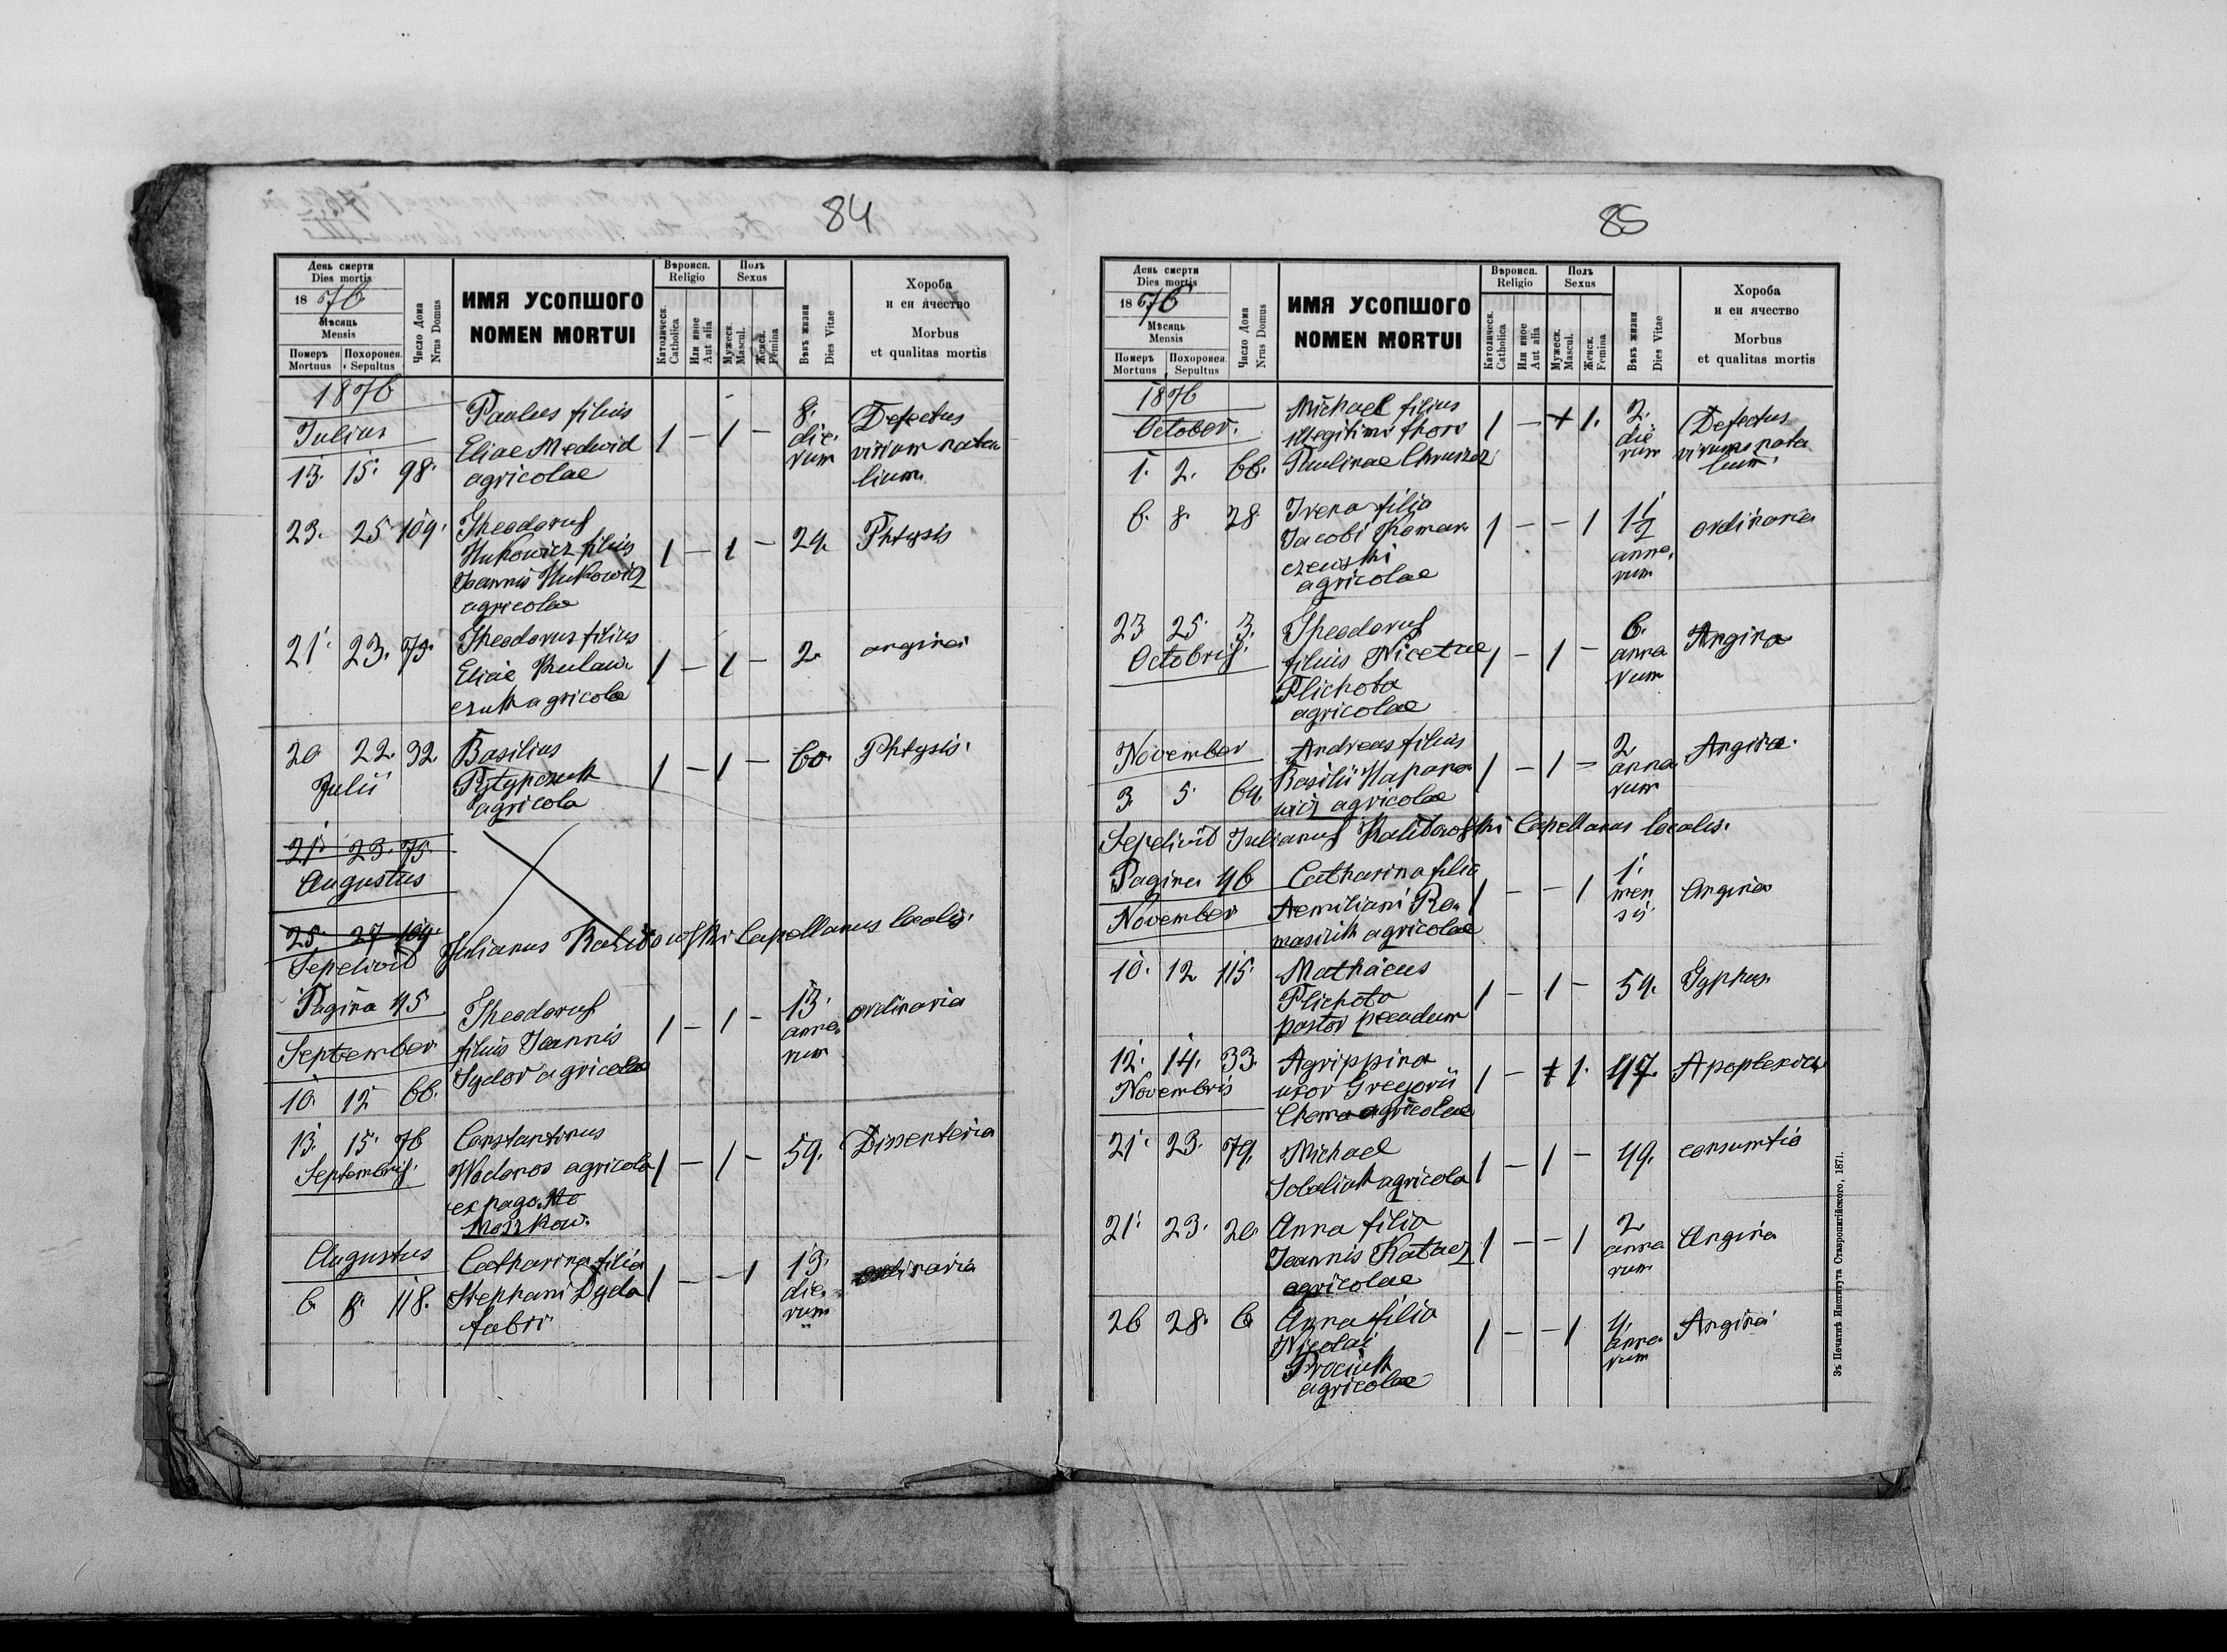 84
День смерти
Dies mortis
1876
Мѣсяць
Mensis
Померъ
Mortuus
Похоронен.
Sepultus
Число Дома
Nrus Domus
ИМЯ УСОПШОГО
NOMEN MORTUI
Вѣроисп.
Religio
Католическ.
Catholica
Или иное
Aut alia
Полъ
Sexus
Мужеск.
Mascul.
Женск.
Femina
Вѣкъ жизни
Dies Vitae
Хороба
и еи ячество
Morbus
et qualitas mortis
1876
Julius
13. 15. 98.
Paulus filius
Eliae Medwid
agricolae
1 – 1 –
8.
die.
rum
Defectus
virium nata
lium.
23. 25 109.
Theodorus
Hukowicz filius
Joannis Hukowicz
agricolae
1 – 1 –
29.
Phtysis
21. 23. 75.
Theodorus filius
Eliae
agricola
1 – 1 –
2.
angina
20 22. 32.
Julii
Basilius
agricola
1 – 1 –
60.
Phtysis.
21. 23. 75.
Augustus
25. 27 109.
Sepelivit Julianus Capellanus localis.
Pagina 45
September
10. 12 66.
Theodorus
filius Joannis
Sydor agricolae
1 – 1 –
13.
anno
rum
ordinaria
13. 15. 76
Septembris.
Constantinus
Wodonos agricola
ex pago Mo
Moszkow.
1 – 1 –
59.
Disenteria
Augustus
6. 8. 118.
Catharina filia
Stephani Dyda
fabri
1 – – 1
13.
die.
rum
ordinaria
85
День смерти
Dies mortis
1876
Мѣсяць
Mensis
Померъ
Mortuus
Похоронен.
Sepultus
Число Дома
Nrus Domus
ИМЯ УСОПШОГО
NOMEN MORTUI
Вѣроисп.
Religio
Католическ.
Catholica
Или иное
Aut alia
Полъ
Sexus
Мужеск.
Mascul.
Женск.
Femina
Вѣкъ жизни
Dies Vitae
Хороба
и еи ячество
Morbus
et qualitas mortis
1876
October.
1. 2. 66.
Michael filius
illegitimi thori
Paulinae
1 – + 1.
2.
die
rum
Defectus
virium nata
lium.
6. 8. 28
Irena filia
Jacobi Komar
czewski
agricolae
1 – – 1
1 1/2
anno.
rum
ordinaria
23 25. 3.
Octobris.
Theodorus
filius Nicetae
Plichota
agricolae
1 – 1 –
6.
anno
rum
Angina
November
3. 5. 64.
Andreas filius
Basilii Hapono
wicz agricolae
1 – 1 –
2
anno
rum
Angina.
Sepelivit Julianus Capellanus localis.
Pagina 46
November
Catharina filia
Aemiliani Ro
masiuk agricolae
1 – – 1
1.
men
sis.
Angina
10. 12 115.
Mathaeus
Plichota
pastor pecudum
1 – 1 –
59.
Typhus.
12. 14. 33.
Novembris
Agrippina
uxor Gregorii
Choma agricolae
1 – 1.
47.
Apoplexia
21. 23. 79.
Michael
agricola
1 – 1 –
49.
consumtio
21. 23. 20.
Anna filia
Joannis
agricolae
1 – – 1
2
anno
rum
Angina
26 28. 6
Anna filia
Nicolai
Prociuk
agricolae
1 – – 1
4.
anno
rum
Angina
Зъ Печатнѣ Института Ставропигійского, 1871.